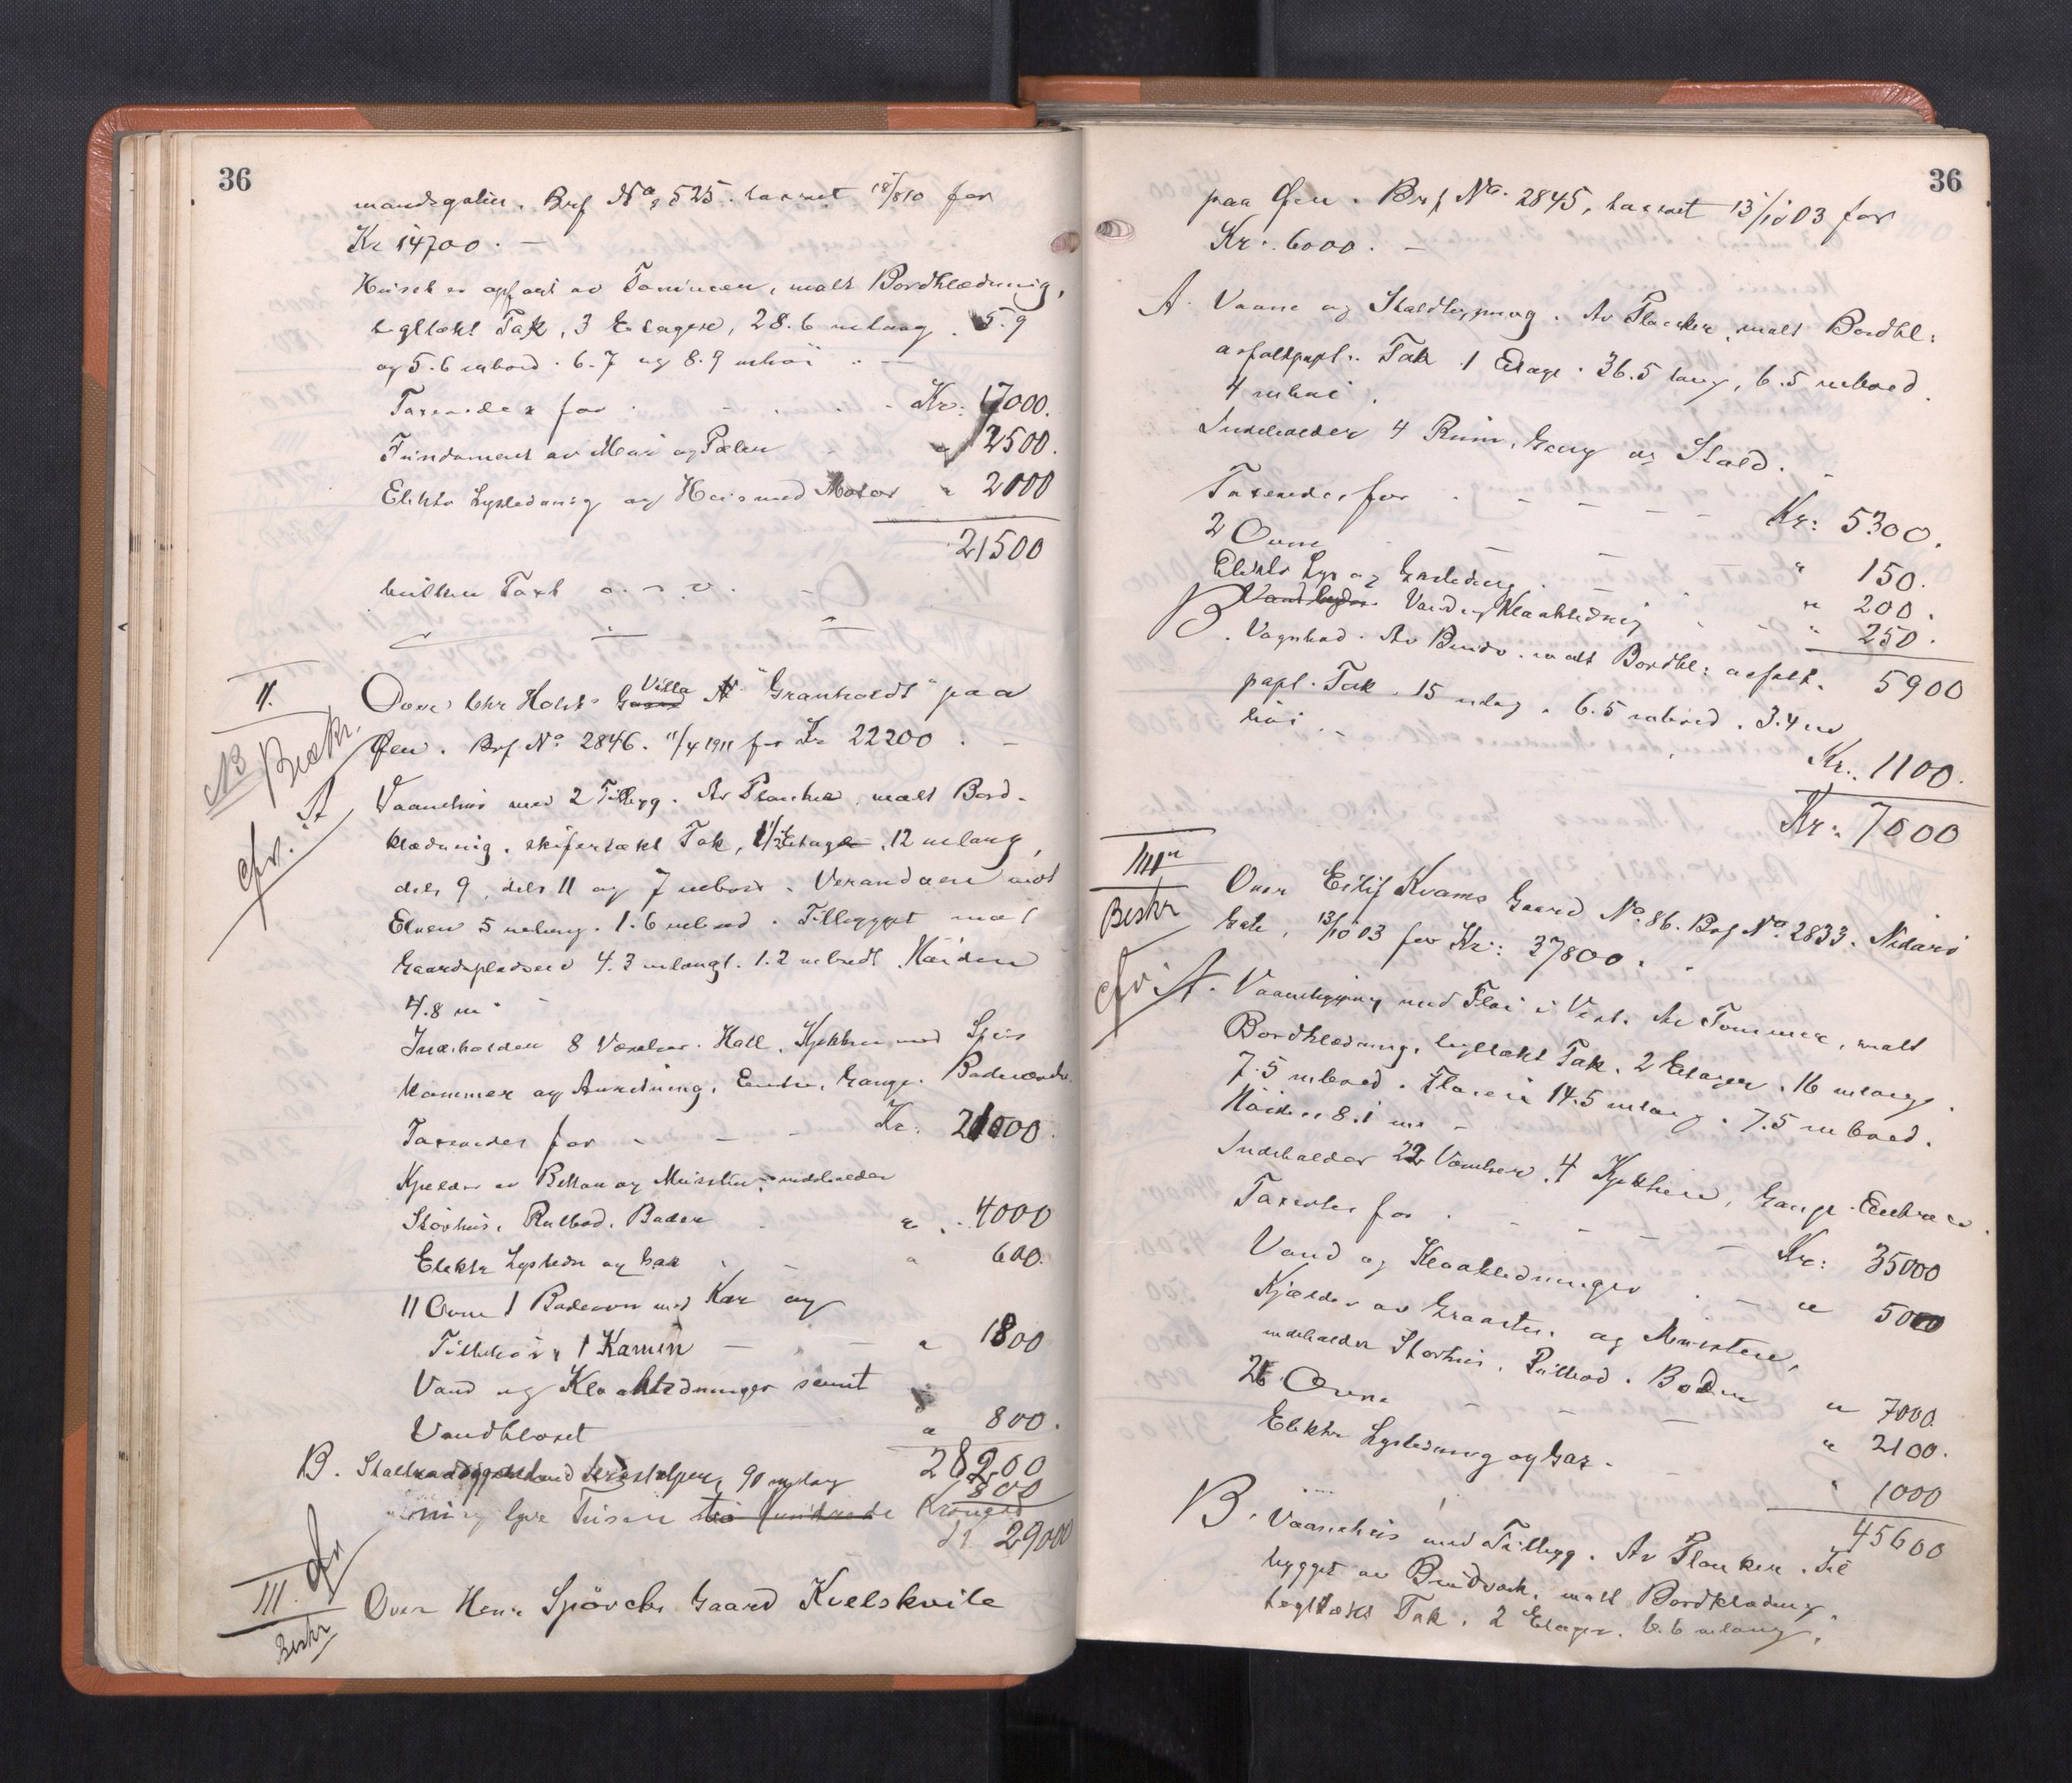 36
mandsgaten. Brf No 525. taxeret 18/8 10 for
Kr 14700. —
Huset er opført av Tømmer, malt Bordklædning,
tegltækt Tak, 3 Etager, 28.6 m lang. 5.9
og 5.6 m bred. 6.7 og 8.9 m høi. —
Taxeredes for Kr: 17000.
Fundament av Mur og Pæler " 2500.
Elektr Lysledning og Heis med Motor " 2000
21500
hvilken Taxt o. s. v.
II.
NB Beskr.
cfr. A
Over Chr Holst's Villa "Granholdt" paa
Øen. Brf No 2846. 11/4 1911 for Kr 22200. —
Vaaningshus med 2 Tilbyg. Av Planker, malt Bord-
klædning, skifertækt Tak, 1 1/2 Etage. 12 m lang,
dels 9, dels 11 og 7 m bred. Verandaen mot
Elven 5 m lang. 1.6 m bred. Tilbygget mot
Gaardspladsen 4.3 m langt. 1.2 m bredt. Høiden
4.8 m
Indeholder 8 Værelser. Hall, Kjøkken med Spis
kammer og Anretning, Entre, Gange. Badeværelse.
Taxeredes for Kr. 21000.
Kjelder av Betton og Mursten indeholder
Skorhus, Rulbod, Boder " 4000
Elektr Lysledn og Gas " 600.
11 Ovne 1 Badeovn med Kar og
Tilbehør, 1 Kamin " 1800
Vand og Kloakledninger samt
Vandkloset " 800.
28200
B. 90 m lang 800
tyve Tusen Kroner
Kr 29000
III. cfr
Beskr
Over Henr Spørcks Gaard Kvelskvile
36
paa Øen. Brf No. 2845, taxeret 13/10 03 for
Kr. 6000. —
A. Vaane og Staldbygning. Av Planker, malt Bordkl:
asfaltpapt. Tak 1 Etage. 36.5 lang, 6.5 m bred.
4 m høi.
Indeholder 4 Rum, Gang og Stald. —
Taxeredes for Kr: 5300.
2 Ovne " 150.
Elektr Lys og Gasledning " 200.
Vand og Kloakledning " 250.
5900
B. Vognbod. Av Bindv. malt Bordkl: asfalt.
papt. Tak. 15 m lang. 6.5 m bred. 3.4 m
høi. Kr. 1100.
Kr. 7000
IIII
Beskr
cfr. A.
Over Eilif Kvams Gaard No. 86. Brf No. 2833. Nidarø
Gate, 13/10 03 for Kr: 37800.
Vaanebygning med Fløi i Vest. Av Tømmer, malt
Bordklædning, tegltækt Tak. 2 Etager. 16 m lang.
7.5 m bred. Fløien 14.5 m lang. 7.5 m bred.
Høiden 8.1 m. —
Indeholder 22 Værelser, 4 Kjøkkener, Gange. Entreer.
Taxeredes for Kr: 35000
Vand og Kloakledninger " 500
Kjælder av Graasten og Mursten,
indeholder Skorhus, Rulbod. Boder " 7000.
26 Ovne " 2100.
Elektr Lysledning og Gas. " 1000
45600
B. Vaanehus med Tilbyg. Av Planker. Til
bygget av Bindverk, malt Bordklædning,
tegltækt Tak. 2 Etager. 6.6 m lang,